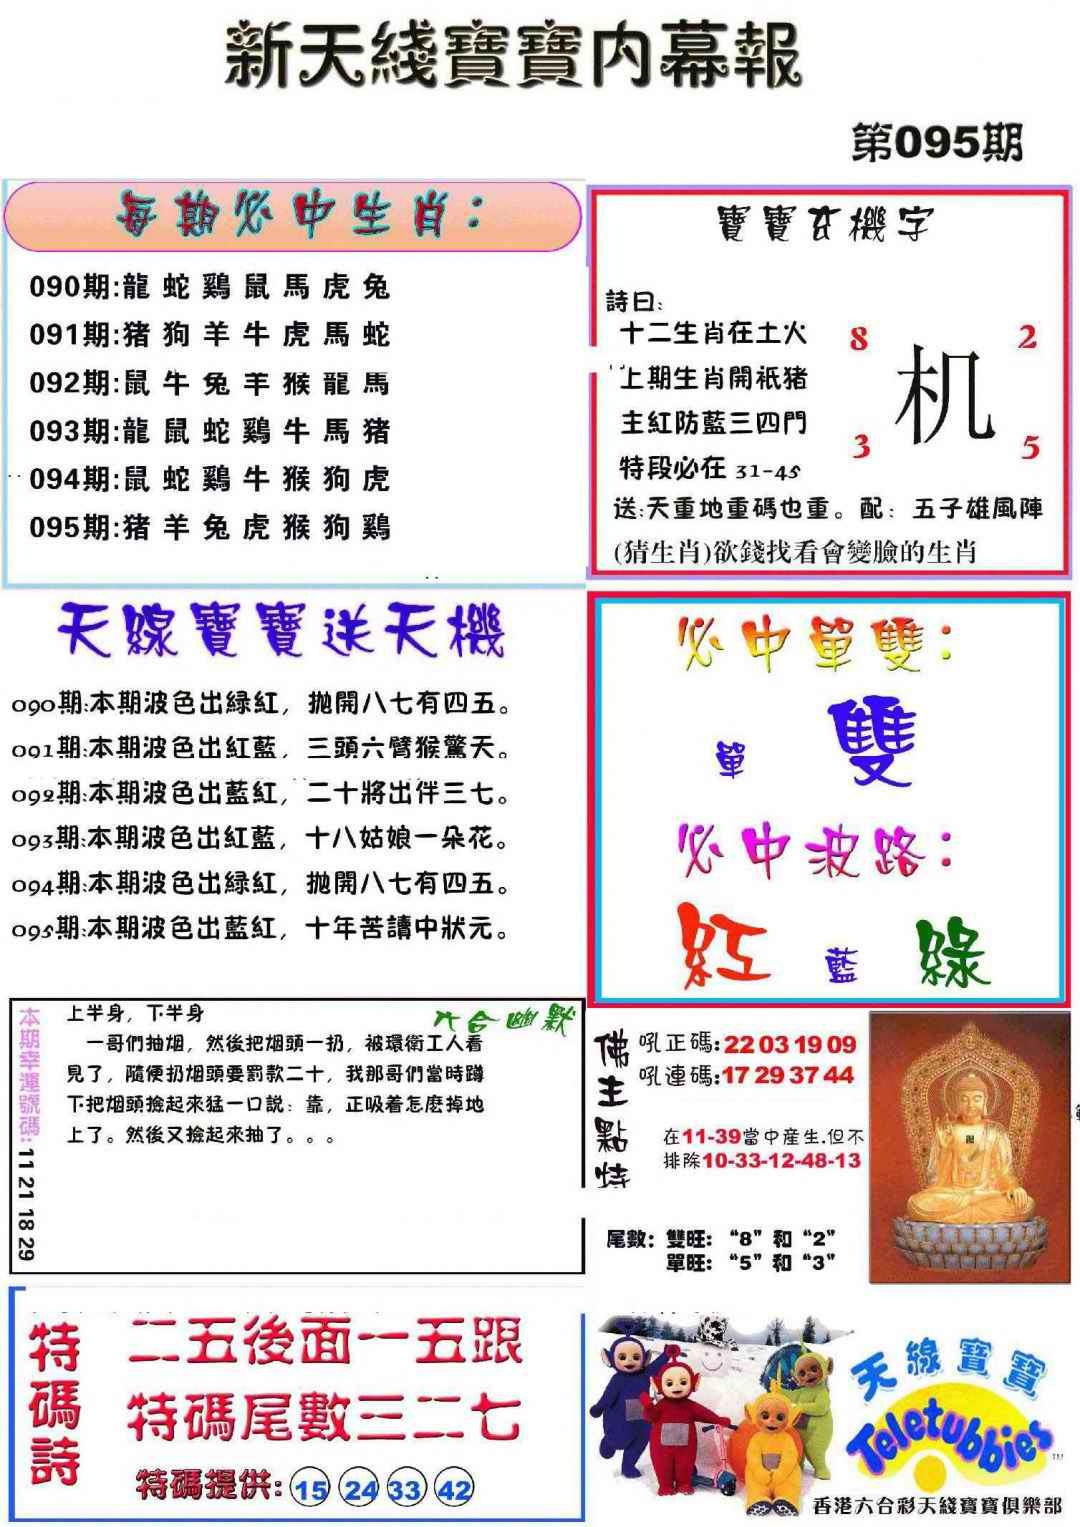 新天綫寶寶内幕報
第095期
每期必中生肖：
090期:龍蛇鷄鼠馬虎兔
091期:猪狗羊牛虎馬蛇
092期:鼠牛兔羊猴龍馬
093期:龍鼠蛇鷄牛馬猪
094期:鼠蛇鷄牛猴狗虎
095期:猪羊兔虎猴狗鷄
寶寶玄機字
詩曰:
十二生肖在土火
上期生肖開祇猪
主紅防藍三四門
特段必在 31-45
8
2
机
3
5
送:天重地重碼也重。配：五子雄風陣
(猜生肖)欲錢找看會變臉的生肖
天線寶寶送天機
090期:本期波色出緑紅，抛開八七有四五。
091期:本期波色出紅藍，三頭六臂猴驚天。
092期:本期波色出藍紅，二十將出伴三七。
093期:本期波色出紅藍，十八姑娘一朵花。
094期:本期波色出緑紅，抛開八七有四五。
095期:本期波色出藍紅，十年苦讀中狀元。
必中單雙：
單 雙
必中波路：
紅 藍 綠
本期幸運號碼: 11 21 18 29
六合幽默
上半身，下半身
一哥們抽烟，然後把烟頭一扔，被環衛工人看
見了，隨便扔烟頭要罰款二十，我那哥們當時蹲
下把烟頭撿起來猛一口説：靠，正吸着怎麽掉地
上了。然後又撿起來抽了。。。
佛主點特
吼正碼:22 03 19 09
吼連碼:17 29 37 44
在11-39當中産生.但不
排除10-33-12-48-13
尾數：雙旺：“8”和“2”
單旺：“5”和“3”
特碼詩
二五後面一五跟
特碼尾數三二七
特碼提供: 15 24 33 42
天線寶寶
Teletubbies
TM
香港六合彩天綫寶寶俱樂部